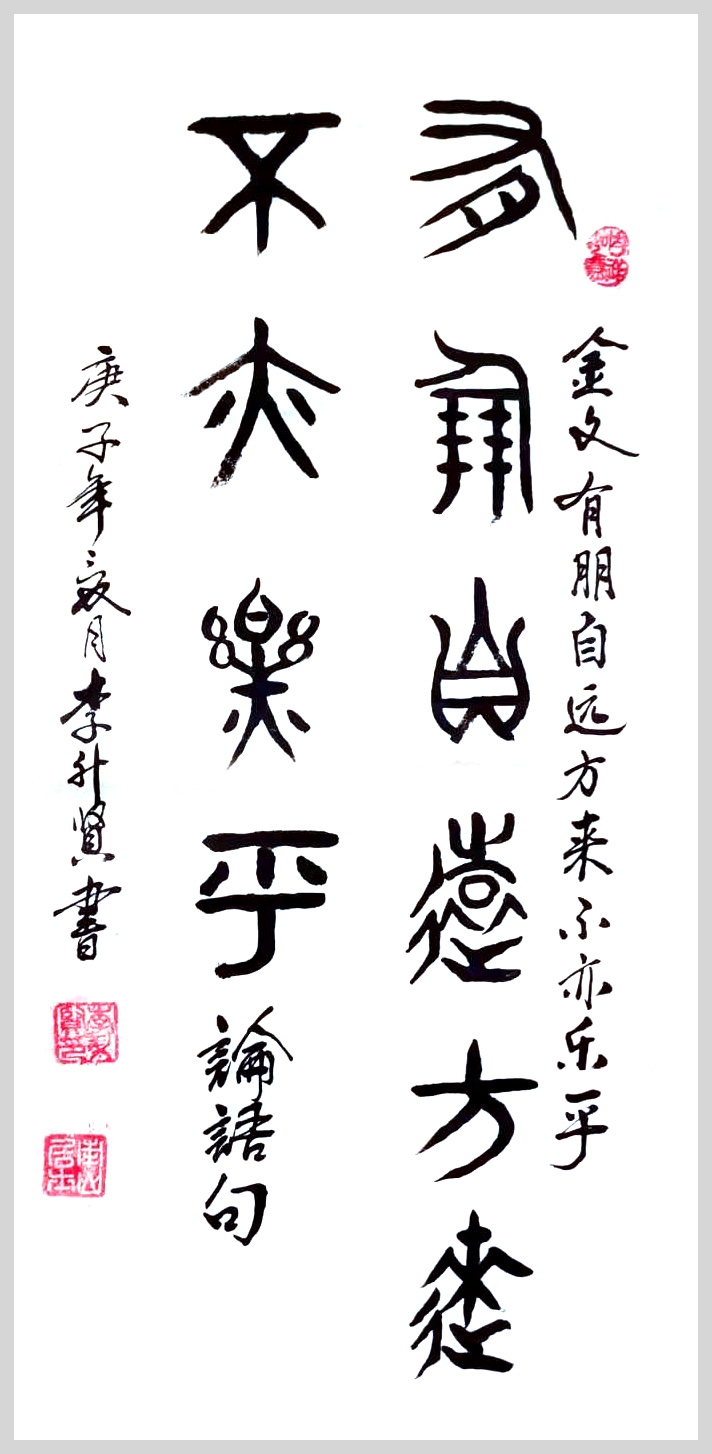 金文有朋自远方来不亦乐乎
有朋自遠方逨
不亦樂乎論語句
庚子年夏月李升賢書